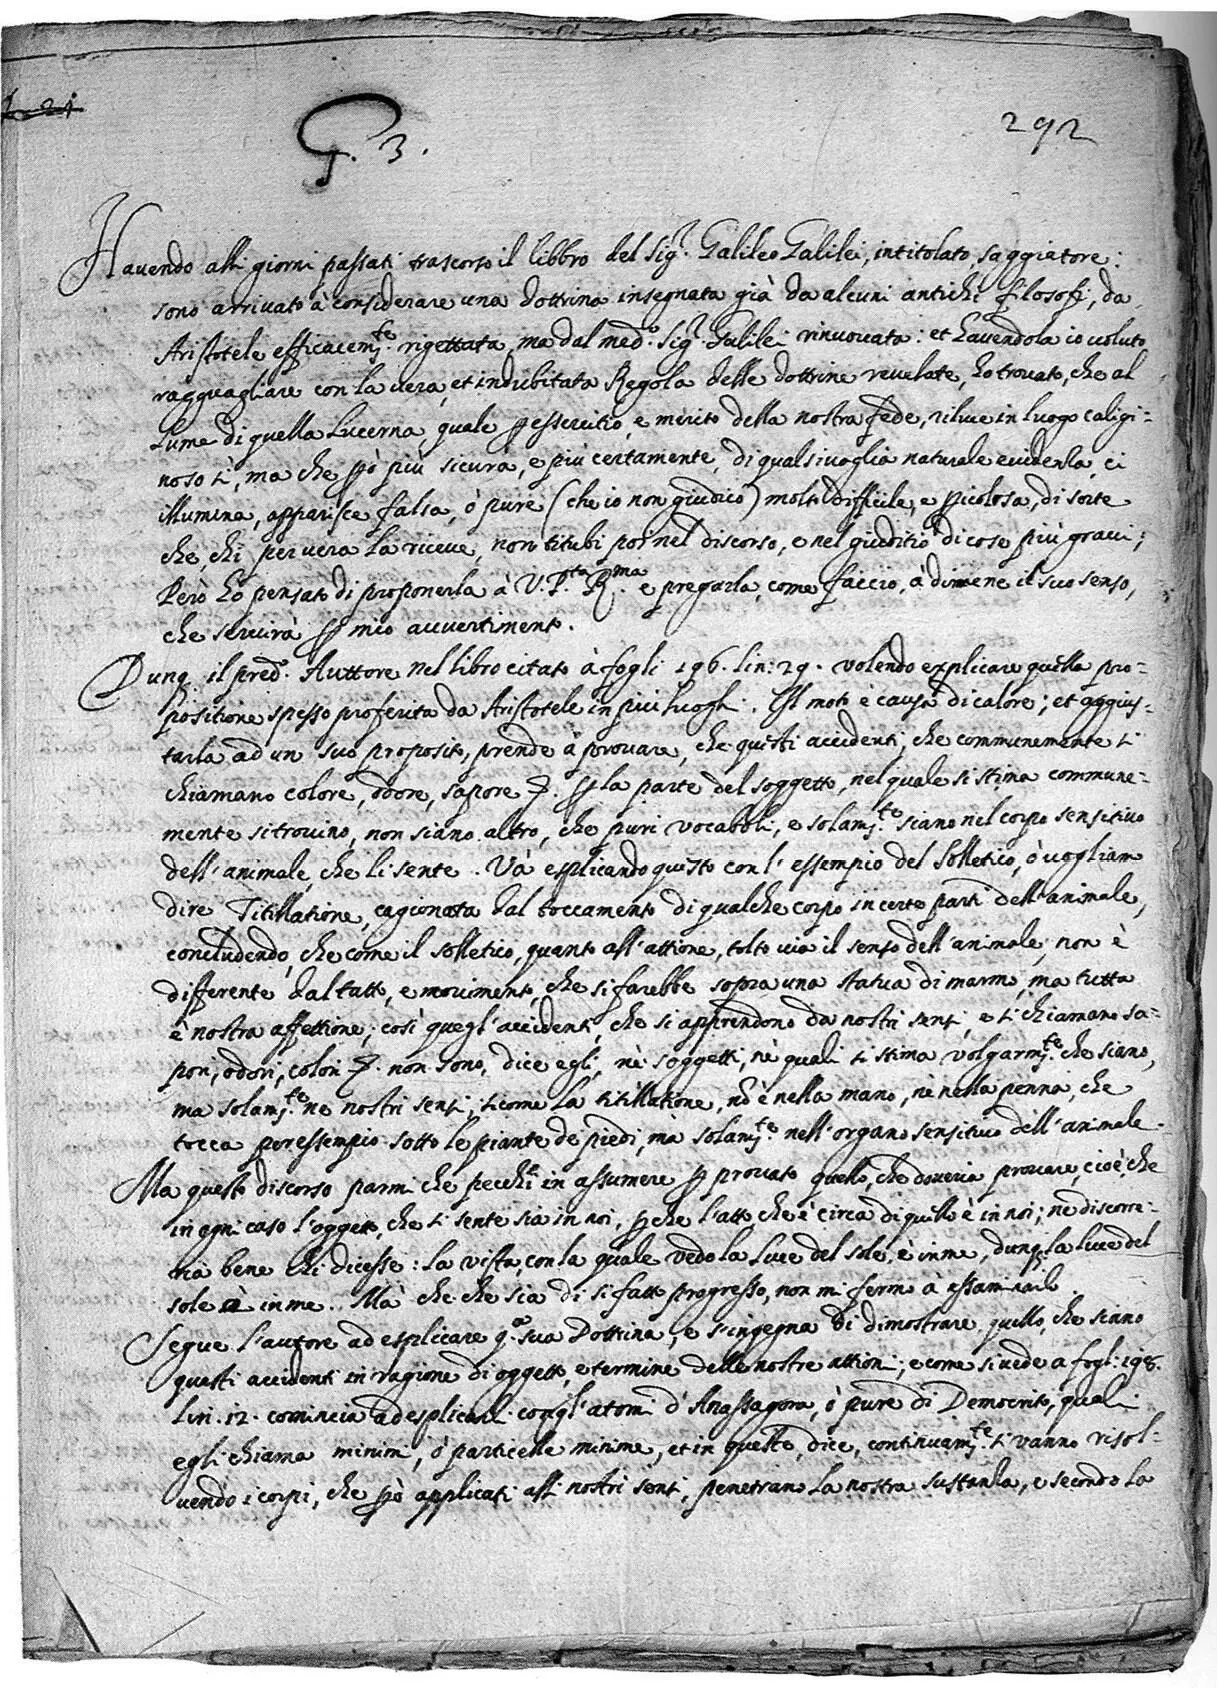 G. 3.
292
Havendo alli giorni passati trascorso il libbro del Sigr. Galileo Galilei, intitolato saggiatore:
sono arrivato à considerare una dottrina insegnata già da alcuni antichi filosofi, da
Aristotele efficacemte. rigettata, ma dal medo. Sigr. Galilei rinuovata: et havendola io voluto
ragguagliare con la vera, et indubitata Regola delle dottrine revelate, ho trovato, che al
Lume di quella Lucerna, quale p essercitio, e merito della nostra fede, riluce in luogo caligi=
noso sì, ma che pò più sicura, e più certamente, di qualsivoglia naturale evidenza, ci
illumina, apparisce falsa, ò pure (che io non giudico) molto difficile, e picolosa, di sorte
che, chi per vera la riceve, non titubi poi nel discorso, e nel giuditio di cose più gravi;
Però hò pensato di proponerla à V. P.ta R.ma e pregarla, come faccio, à dirmene il suo senso,
che servirà p mio avvertimento.
Dunq. il predo. Auttore nel libro citato à fogli 196. lin: 29. volendo explicare quella pro=
positione spesso proferita da Aristotele in più luoghi. Il moto è causa di calore; et aggius=
tarla ad un suo proposito, prende à provare, che questi accidenti, che communemente si
chiamano colore, odore, sapore &. p la parte del soggetto, nel quale si stima commune=
mente si trovino, non siano altro, che puri vocaboli, e solamte. siano nel corpo sensitivo
dell'animale, che li sente. Và esplicando questo con l'essempio del Solletico, ò vogliam
dire Titillatione, cagionata dal toccamento di qualche corpo in certe parti dell'animale,
concludendo, che come il solletico, quanto all'attione, tolto via il senso dell'animale, non è
differente dal tatto, e movimento, che si farebbe sopra una statua di marmo, ma tutta
è nostra affettione; così quegl'accidenti, che si apprendono da nostri sensi, e si chiamano sa=
pori, odori, colori &. non sono, dice egli, nè soggetti, nè quali si stima volgarmte. che siano,
ma solamte. ne nostri sensi; sicome la titillatione, nò è nella mano, nè nella penna, che
tocca per essempio sotto le piante de piedi, ma solamte. nell'organo sensitivo dell'animale.
Ma questo discorso parmi che pecchi in assumere p provato quello, che doveria provare, cioè, che
in ogni caso l'oggetto, che si sente sia in noi, pche l'atto che è circa di quello è in noi; nè discorre=
ria bene chi dicesse: la vista, con la quale vedo la luce del sole, è in me, dunq. la luce del
sole è in me. Mà che che sia di si fatto progresso, non mi fermo à essaminarlo.
Segue l'autore ad esplicare qa. sua Dottrina, e s'ingegna di dimostrare, quello, che siano
questi accidenti in ragione di oggetto, e termine delle nostre attioni; e come si vede a fogl: 198.
lin. 12. comincia ad esplicarli con gl'atomi d'Anassagora, ò pure di Democrito, quali
egli chiama minimi, ò particelle minime, et in queste, dice, continuamte. si vanno risol=
vendo i corpi, che pò applicati alli nostri sensi, penetrano la nostra sustanza, e secondo la